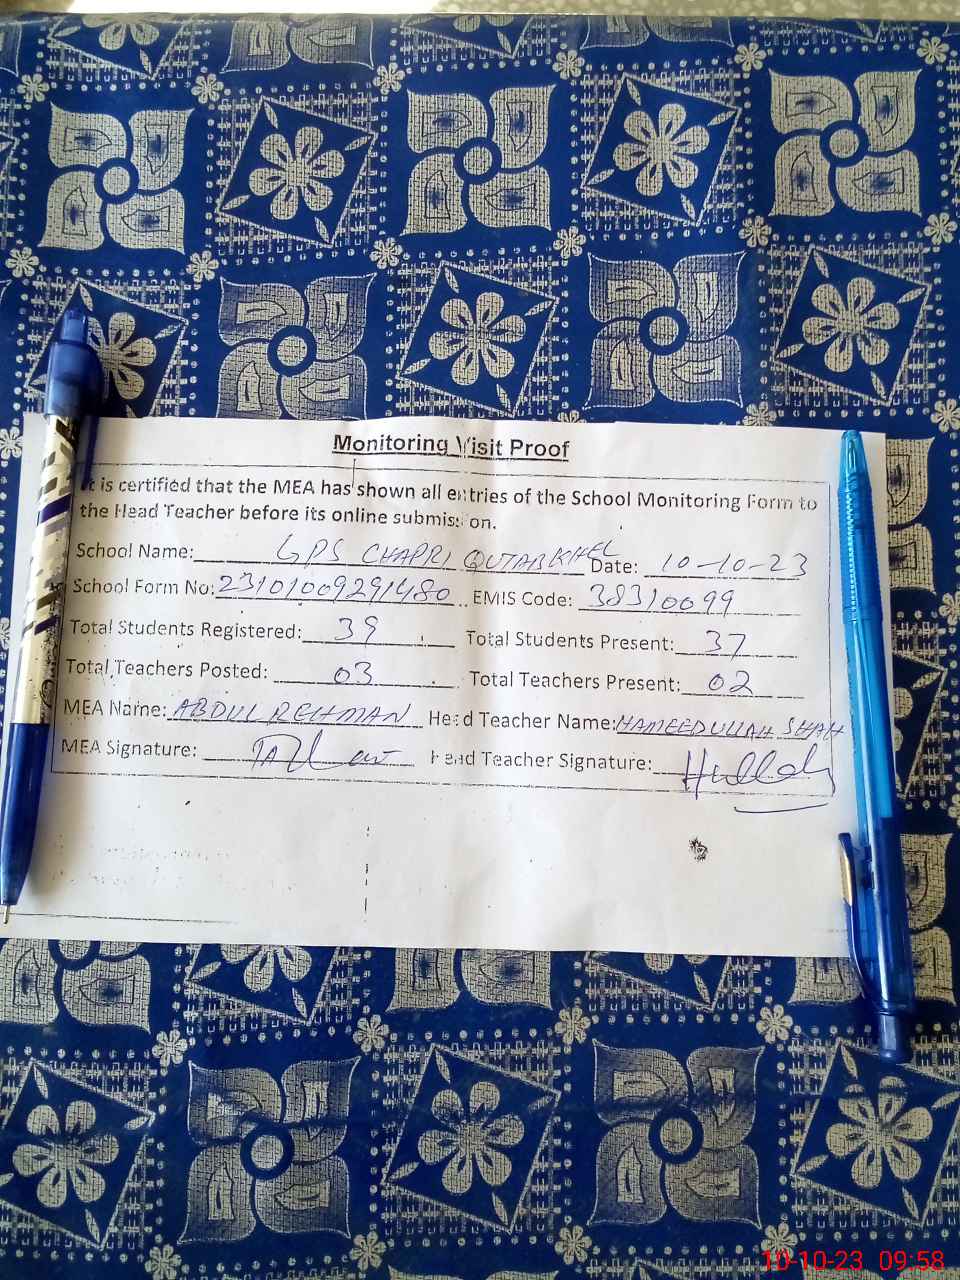 Monitoring Visit Proof
It is certified that the MEA has shown all entries of the School Monitoring Form to
the Head Teacher before its online submission.
School Name: GPS CHAPRI QUTABKHEL Date: 10-10-23
School Form No: 23101009291480 EMIS Code: 38310099
Total Students Registered: 39 Total Students Present: 37
Total Teachers Posted: 03 Total Teachers Present: 02
MEA Name: ABDUL REHMAN Head Teacher Name: HAMEEDULLAH SHAH
MEA Signature: Head Teacher Signature:
10-10-23 09:58